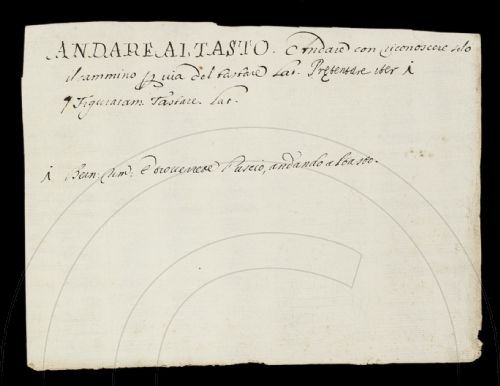 ANDARE AL TASTO. È Andare con riconoscere solo
il cammino p via del tastare Lat. Prętentare iter 1
¶ Figuratam. Tastare. Lat.
1 Buon. è trovarete l'uscio, andando a tasto.